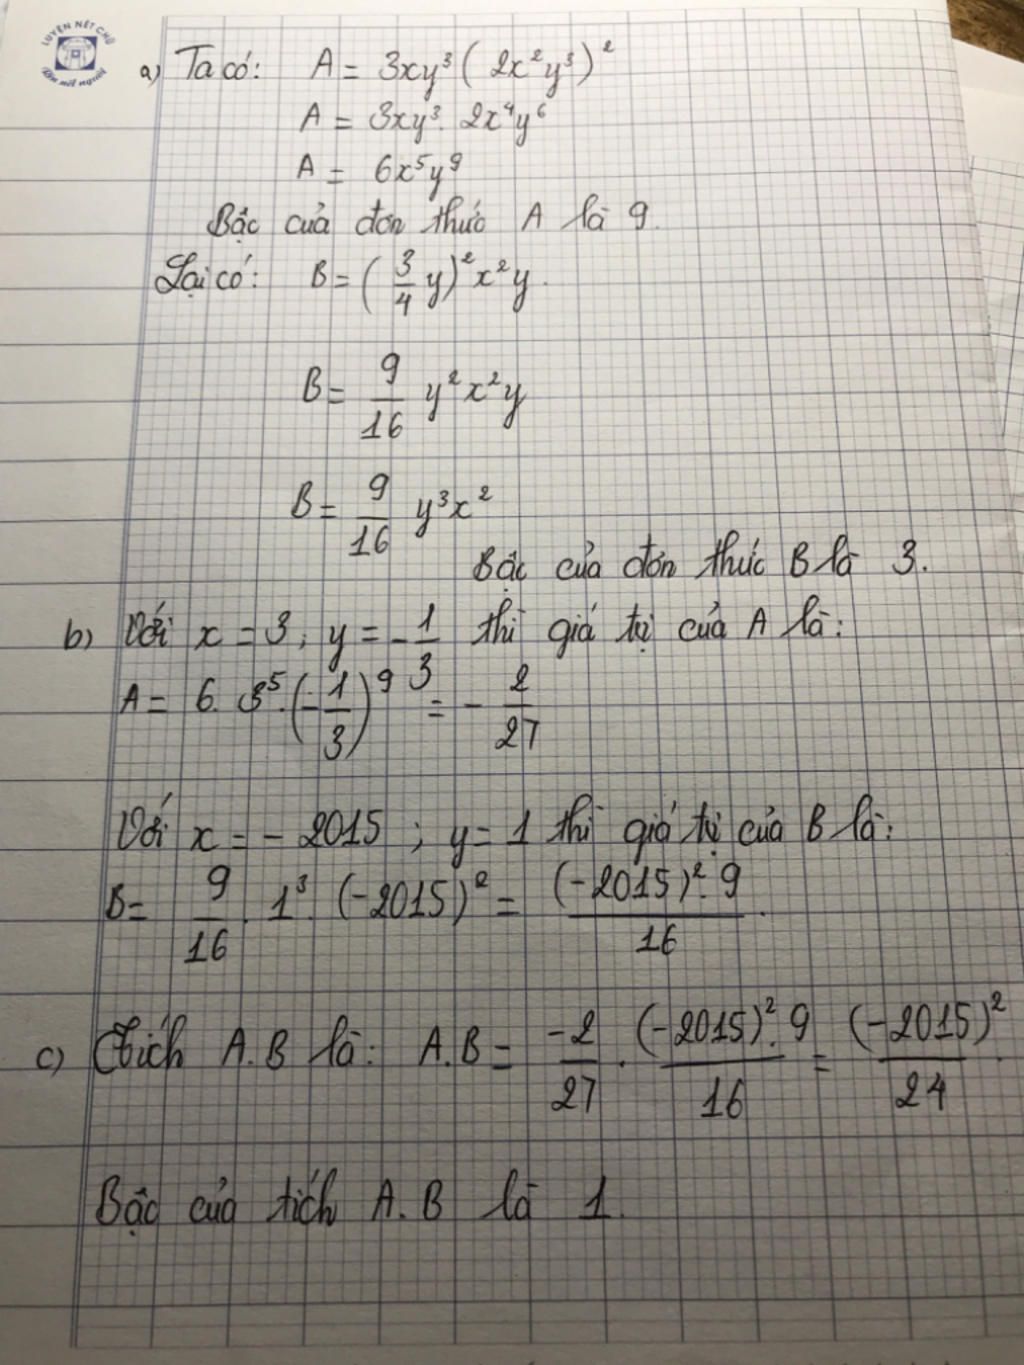 LUYỆN NÉT CHỮ
Rèn nết người
a) Ta có: A = 3xy³ ( 2x²y³ )²
A = 3xy³. 2x⁴y⁶
A = 6x⁵y⁹
Bậc của đơn thức A là 9.
Lại có: B = ( 3/4 y )² x²y.
B = 9/16 y²x²y
B = 9/16 y³x²
Bậc của đơn thức B là 3.
b) Với x = 3; y = - 1/3 thì giá tị của A là:
A = 6. 3⁵. (- 1/3)⁹ = - 2/27
Với x = - 2015 ; y = 1 thì giá tị của B là:
B = 9/16 . 1³. (-2015)² = (-2015)². 9 / 16.
c) Tích A.B là: A.B = -2/27 . (-2015)². 9 / 16 = (-2015)² / 24.
Bậc của tích A.B là 1.